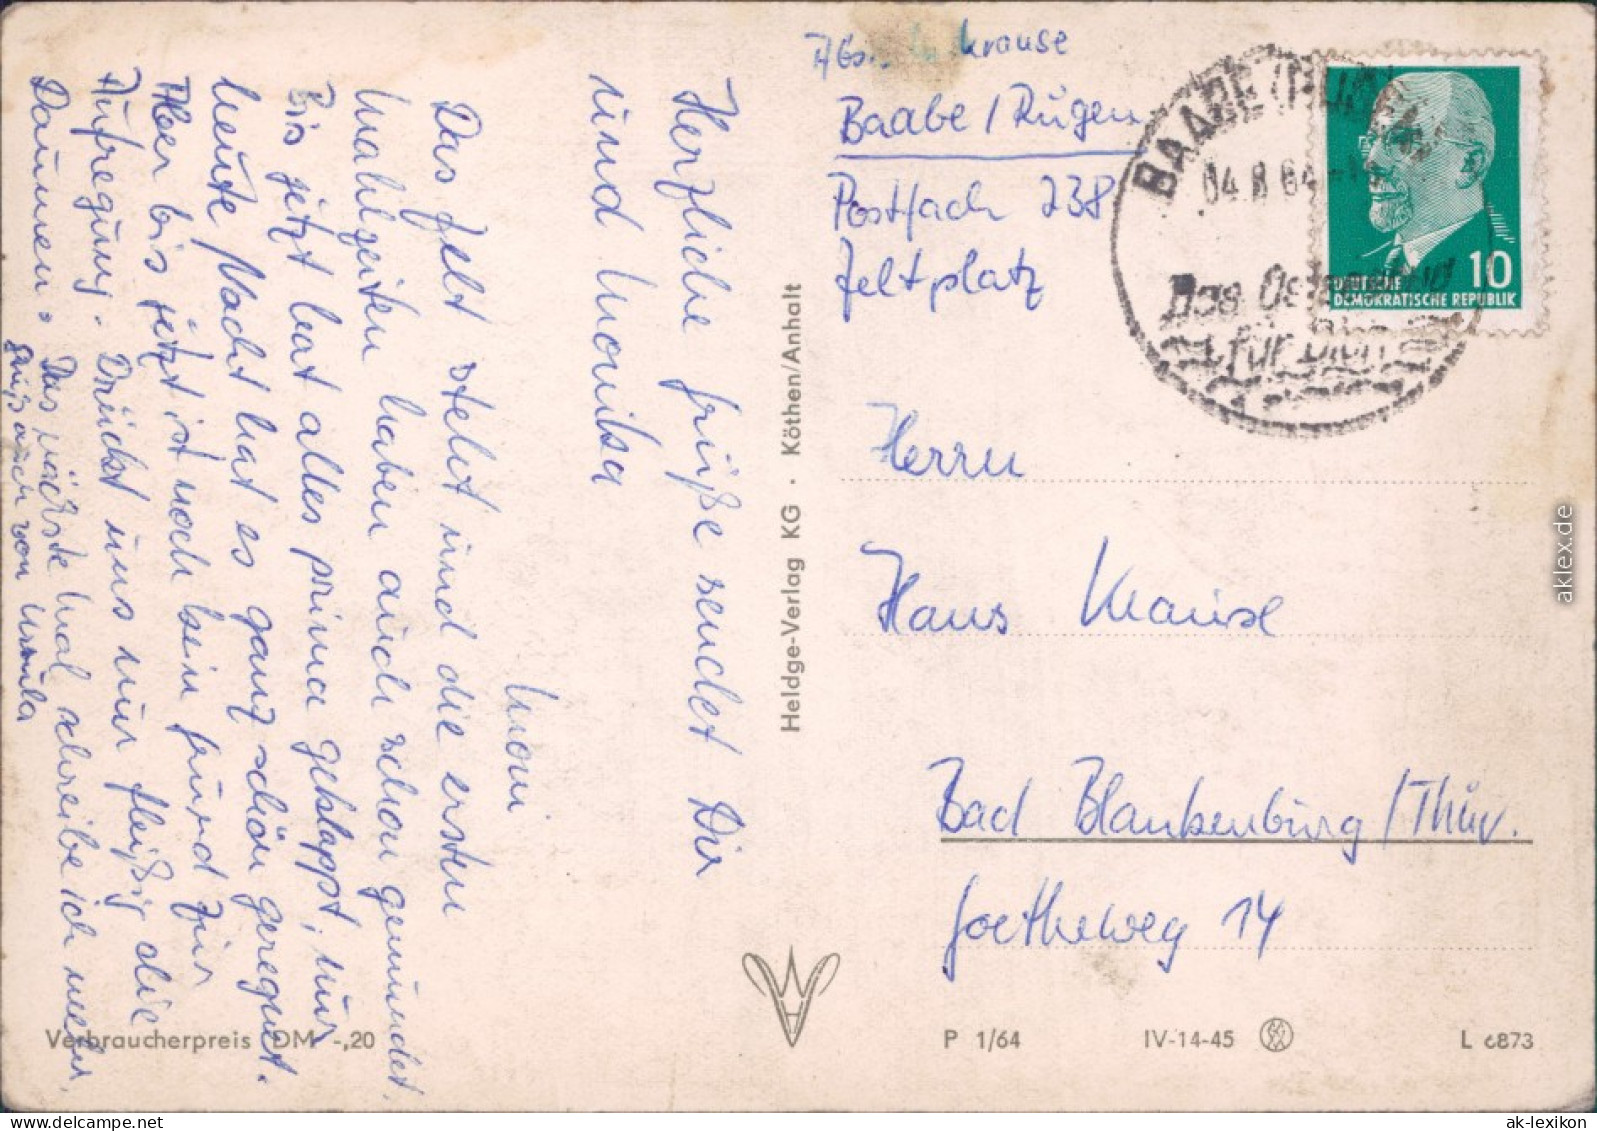 Abs. Krause
Baabe / Rügen
Postfach 238
Zeltplatz
BAABE (RÜGEN)
04.8.64
Das Ostseebad
für Dich
10
DEUTSCHE
DEMOKRATISCHE REPUBLIK
Herrn
Hans Krause
Bad Blankenburg / Thür.
Goetheweg 14
Herzliche Grüße sendet Dir
und Monika
Moni
Das Zelt steht und die ersten
Mahlzeiten haben auch schon gemundet.
Bis jetzt hat alles prima geklappt, nur
heute Nacht hat es ganz schön geregnet.
Aber bis jetzt ist noch kein Grund zur
Aufregung. Drückt uns nur fleißig die
Daumen. Das nächste Mal schreibe ich mehr.
Gruß auch von Ursula
Heldge-Verlag KG · Köthen/Anhalt
Verbraucherpreis DM -,20
P 1/64
IV-14-45
L 6873
aklex.de
www.ansichtskarten-lexikon.de
ak-lexikon